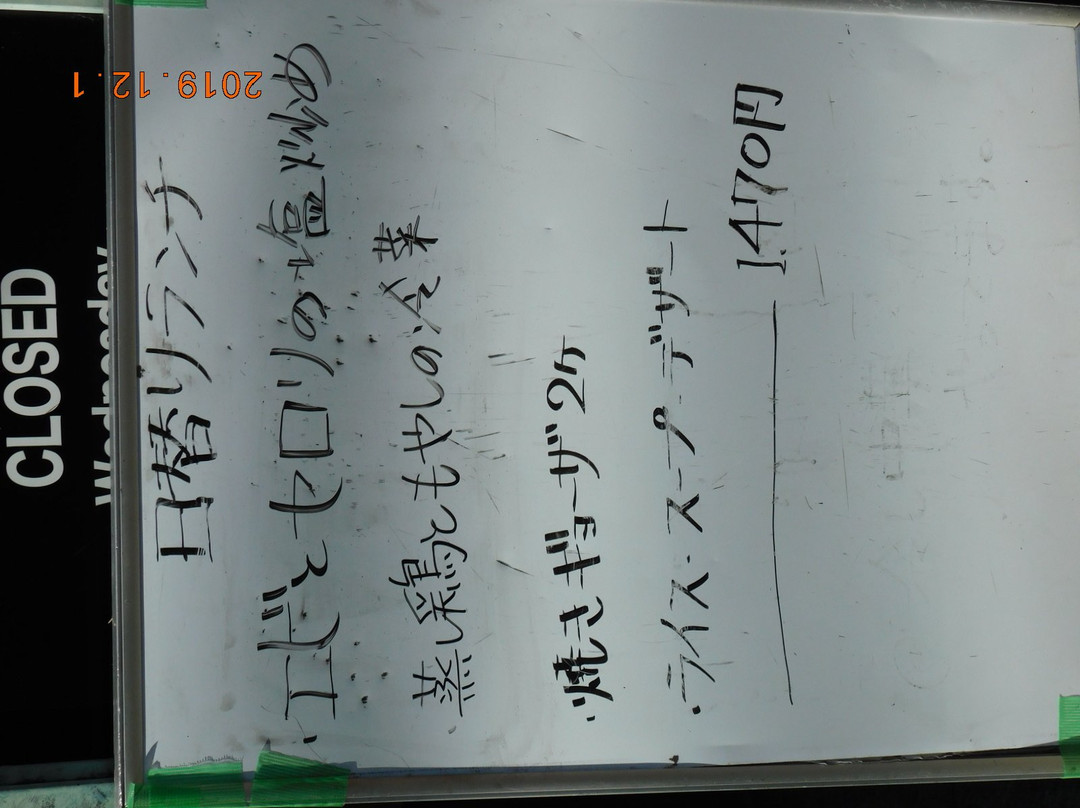 CLOSED
Wednesday
2019.12.1
日替りランチ
・エビとセロリの塩炒め
・蒸し鶏ともやしの冷菜
・焼きギョーザ2ケ
・ライス・スープ・デザート
1.470円